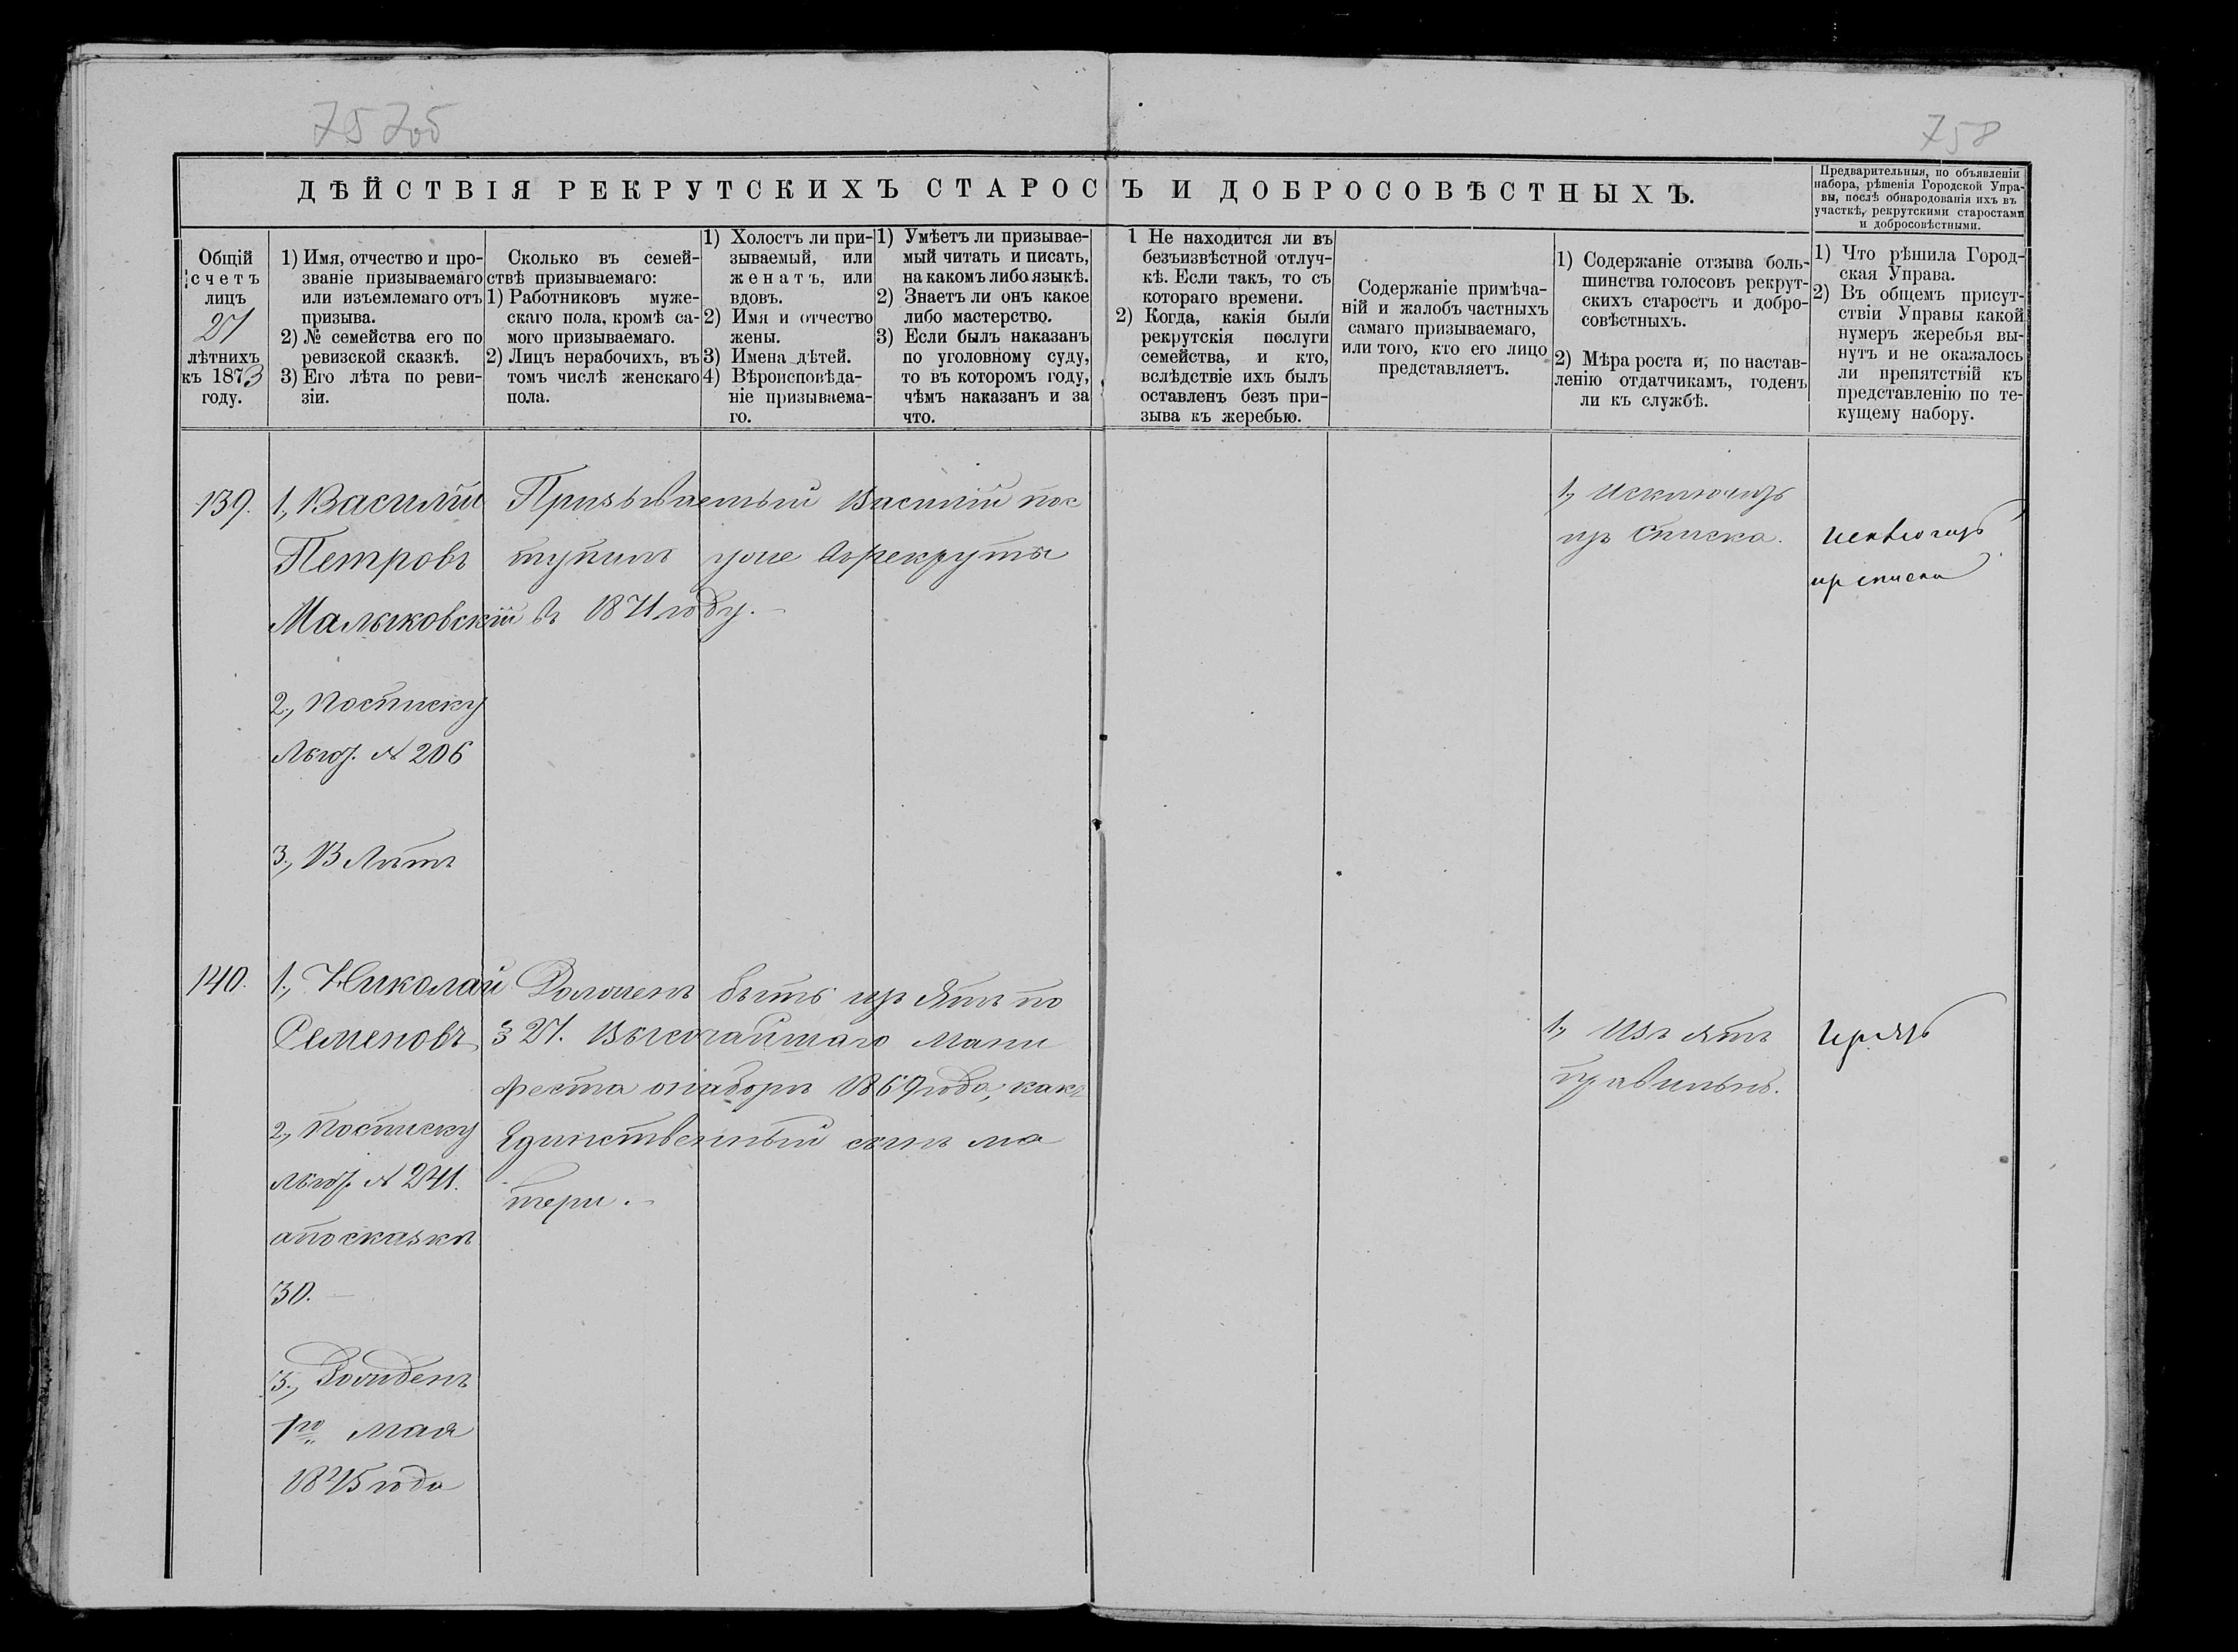 757об
758
ДѢЙСТВІЯ РЕКРУТСКИХЪ СТАРОСТЪ И ДОБРОСОВѢСТНЫХЪ.
Предварительныя, по объявленіи
набора, рѣшенія Городской Упра-
вы, послѣ обнародованія ихъ въ
участкѣ, рекрутскими старостами
и добросовѣстными.
Общій
счетъ
лицъ
27
лѣтнихъ
къ 1873
году.
1) Имя, отчество и про-
званіе призываемаго
или изъемлемаго отъ
призыва.
2) № семейства его по
ревизской сказкѣ.
3) Его лѣта по реви-
зіи.
Сколько въ семей-
ствѣ призываемаго:
1) Работниковъ муже-
скаго пола, кромѣ са-
мого призываемаго.
2) Лицъ нерабочихъ, въ
томъ числѣ женскаго
пола.
1) Холостъ ли при-
зываемый, или
женатъ, или
вдовъ.
2) Имя и отчество
жены.
3) Имена дѣтей.
4) Вѣроисповѣда-
ніе призываема-
го.
1) Умѣетъ ли призывае-
мый читать и писать,
на какомъ либо языкѣ.
2) Знаетъ ли онъ какое
либо мастерство.
3) Если былъ наказанъ
по уголовному суду,
то въ которомъ году,
чѣмъ наказанъ и за
что.
1 Не находится ли въ
безъизвѣстной отлуч-
кѣ. Если такъ, то съ
котораго времени.
2) Когда, какія были
рекрутскія послуги
семейства, и кто,
вслѣдствіе ихъ былъ
оставленъ безъ при-
зыва къ жеребью.
Содержаніе примѣча-
ній и жалобъ частныхъ
самаго призываемаго,
или того, кто его лицо
представляетъ.
1) Содержаніе отзыва боль-
шинства голосовъ рекрут-
скихъ старостъ и добро-
совѣстныхъ.
2) Мѣра роста и, по настав-
ленію отдатчикамъ, годенъ
ли къ службѣ.
1) Что рѣшила Город-
ская Управа.
2) Въ общемъ присут-
ствіи Управы какой
нумеръ жеребья вы-
нутъ и не оказалось
ли препятствій къ
представленію по те-
кущему набору.
139.
1., Василій
Петровъ
Малыковскій
2., По списку
Льгот. № 206
3., 13 Лѣтъ
Призываемый Василій пос
тупилъ уже въ рекруты
въ 1871 году.
1., Исключить
изъ списка.
исключить
изъ списка
140.
1., Николай
Семеновъ
2., По списку
льгот. № 241.
а по сказкѣ
30.
3., Рожденъ
1го мая
1845 года
Долженъ быть изъятъ по
§ 27. Высочайшаго Мани
феста о наборѣ 1869 года, какъ
Единственный сынъ ма
тери.
1., Изъятъ
правильно.
Изъять